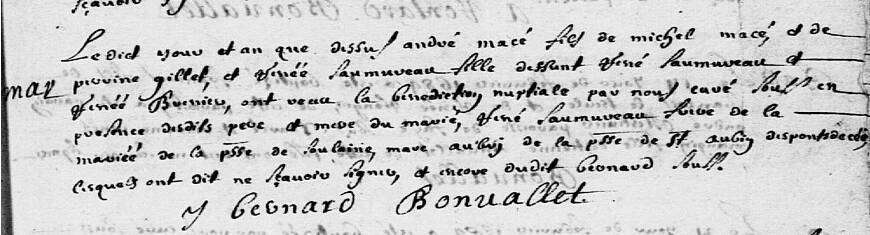 sçavoir
Le dict jour et an que dessus andré macé fils de michel macé, et de
mar perrine gillet, et Renée Saumuveau fille deffunt René Saumuveau et
Renée Brenier, ont receu la benediction nuptiale par nous curé souss. en
presence desdits pere et mere du marié, René Saumuveau frere de la
mariée de la psse de soulaine, marc aubry de la psse de St aubin des ponts de cé
lesquels ont dit ne sçavoir signer, et encore dudit bernard souss.
J bernard Bonvallet.